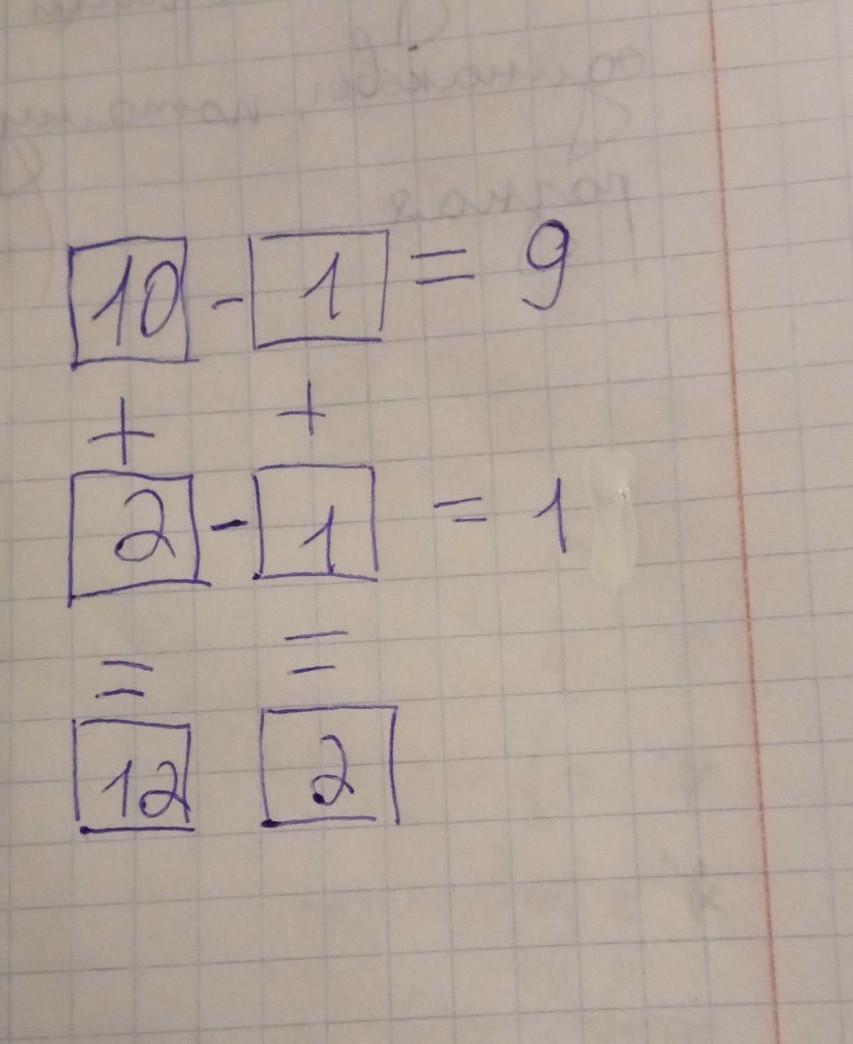 10 - 1 = 9
+ +
2 - 1 = 1
= =
12 2